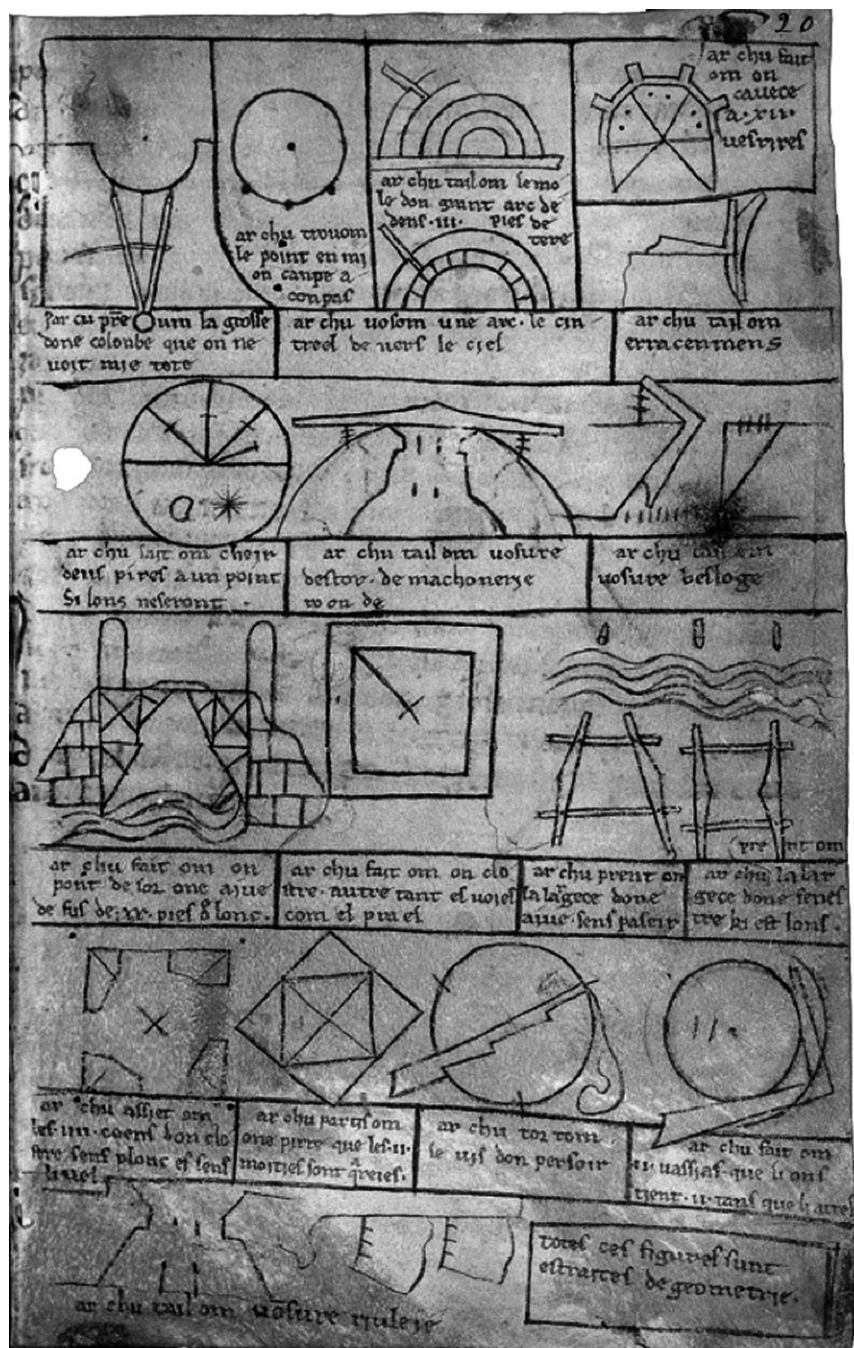 20
ar chu fait
om on
cavece
a · xii ·
vesrires
ar chu tail om le mo
le don grant arc de
dens · iii · pies de
tere
ar chu trovom
le point en mi
on canpe a
conpas
Par cu prē om la grosse
done colonbe que on ne
voit mie tote
ar chu vosom une arc · le cin
treel de vers le ciel
ar chu tail om
erracenmens
ar chu fait om cheir
deus pires a un point
si lons neseront ·
ar chu tail om vosure
destor · de machonerie
roonde
ar chu tail om
vosure besloge
ar chu fait om on
pont de sor one aive
de fus de · xx · pies d lonc ·
ar chu fait om on clo
istre · autre tant es voies
com el prael
ar chu prent on
la largece done
aive · sens paseir
pre nt om
ar chu la lar
gece done fenes
tre ki est lons ·
ar chu assiet om
les · iiii · coens don clo
stre sens plonc et sens
livel
ar chu partis om
one pirre que les · ii ·
moities sont qareies ·
ar chu tor tom
le vis don persoir
ar chu fait om
· ii · vassias · que li ons
tient · ii · tans que li atres
ar chu tail om vosure riuleie
totes ces figures sunt
estraites de geometrie ·